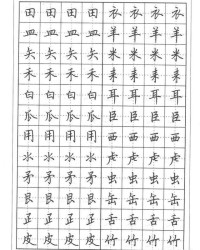 田 田 田 田 衣 衣 衣 衣
皿 皿 皿 皿 羊 羊 羊 羊
矢 矢 矢 矢 米 米 米 米
禾 禾 禾 禾 耒 耒 耒 耒
白 白 白 白 耳 耳 耳 耳
瓜 瓜 瓜 瓜 臣 臣 臣 臣
用 用 用 用 西 西 西 西
氺 氺 氺 氺 虍 虍 虍 虍
矛 矛 矛 矛 虫 虫 虫 虫
艮 艮 艮 艮 缶 缶 缶 缶
疋 疋 疋 疋 舌 舌 舌 舌
皮 皮 皮 皮 竹 竹 竹 竹